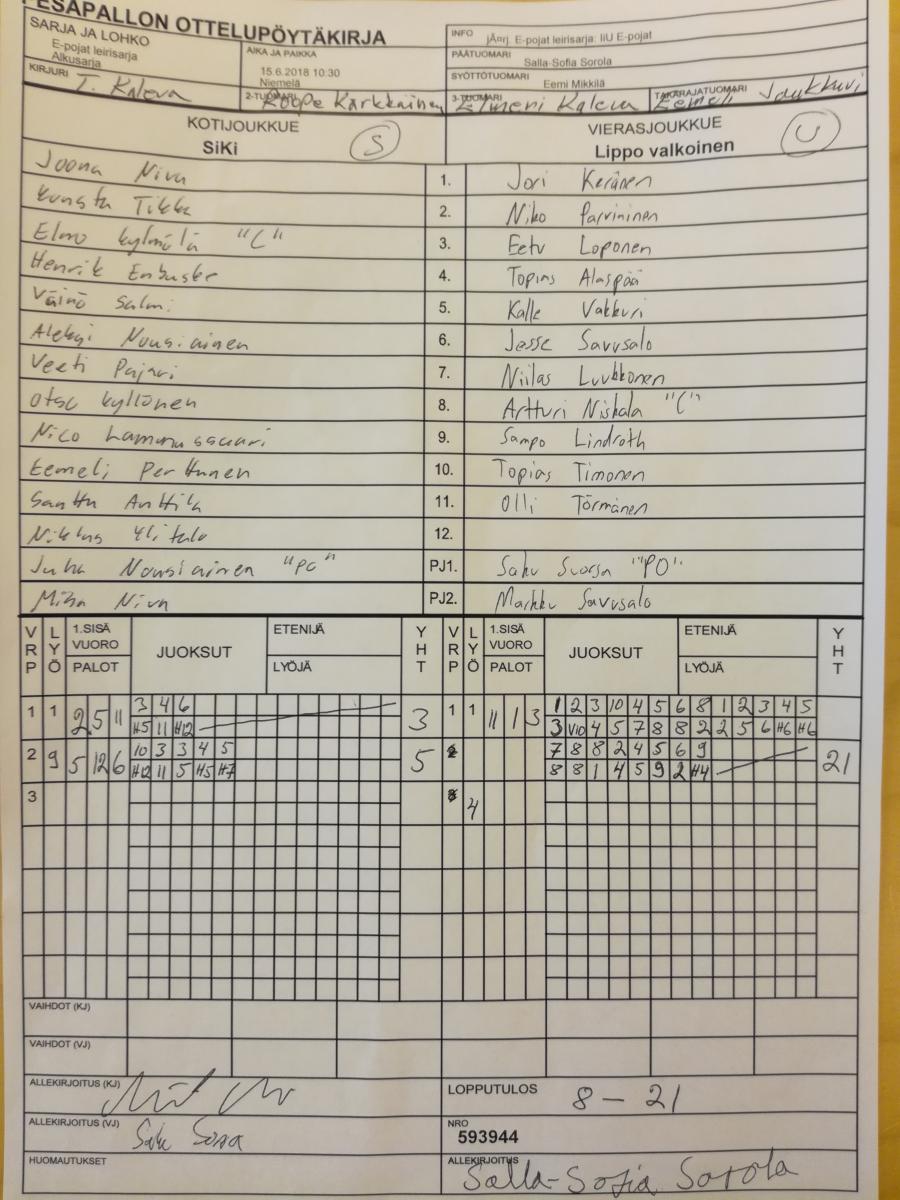 PESÄPALLON OTTELUPÖYTÄKIRJA
SARJA JA LOHKO
E-pojat leirisarja
Alkusarja
AIKA JA PAIKKA
15.6.2018 10:30
Niemelä
INFO jÄrrj. E-pojat leirisarja: IiU E-pojat
PÄÄTUOMARI
Salla-Sofia Sorola
SYÖTTÖTUOMARI
Eemi Mikkilä
KIRJURI T. Kaleva
2-TUOMARI Roope Kärkkäinen
3-TUOMARI Elmeri Kaleva
TAKARAJATUOMARI Eemeli Joukkuri
KOTIJOUKKUE
SiKi S
VIERASJOUKKUE
Lippo valkoinen U
Joona Niva 1. Jori Keränen
Kunstu Tikka 2. Niko Parvininen
Elmo Kylmälä "C" 3. Eetu Loponen
Henrik Enbuske 4. Topias Alaspää
Väinö Salmi 5. Kalle Vakkuri
Aleksi Nousiainen 6. Jesse Savusalo
Veeti Pajari 7. Niilas Luukkonen
Otso Kyllönen 8. Artturi Niskala "C"
Nico Lammassaari 9. Sampo Lindroth
Eemeli Perttunen 10. Topias Timonen
Santtu Anttila 11. Olli Törmänen
Niklas Ylitalo 12.
Juha Nousiainen "PO" PJ1. Saku Suorsa "PO"
Mika Niva PJ2. Markku Savusalo
VRP LYÖ 1.SISÄ VUORO PALOT JUOKSUT ETENIJÄ LYÖJÄ YHT VRP LYÖ 1.SISÄ VUORO PALOT JUOKSUT ETENIJÄ LYÖJÄ YHT
1 1 2 5 11 3 4 6 3 1 1 11 1 3 1 2 3 10 4 5 6 8 1 2 3 4 5
H5 11 H12 3 V10 4 5 7 8 8 2 2 5 6 H6 H6
2 9 5 12 6 10 3 3 4 5 5 2 7 8 8 2 4 5 6 9 21
H12 11 5 H5 H7 8 8 1 4 5 9 2 H4
3 3 4
VAIHDOT (KJ)
VAIHDOT (VJ)
ALLEKIRJOITUS (KJ)
LOPPUTULOS 8 - 21
ALLEKIRJOITUS (VJ)
NRO
593944
HUOMAUTUKSET
ALLEKIRJOITUS Salla-Sofia Sorola